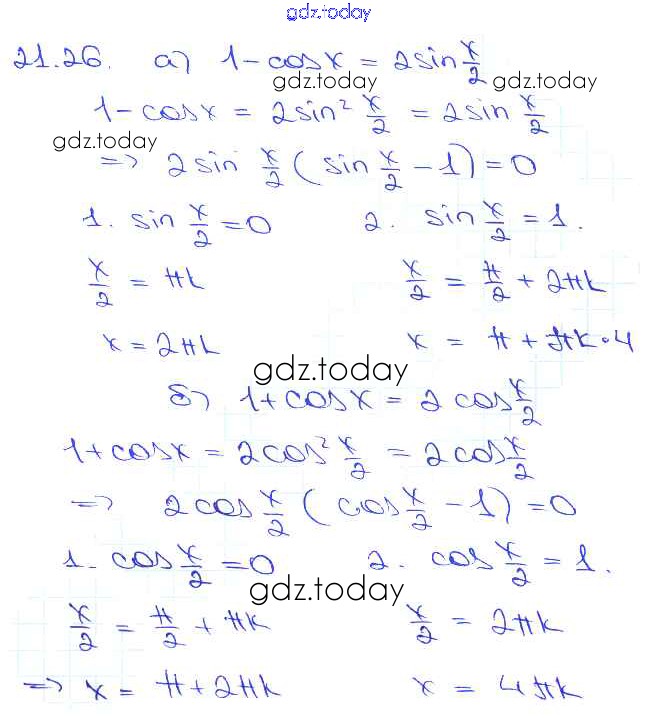 gdz.today
21.26. а) 1-cosx = 2sin x/2
gdz.today gdz.today
1-cosx = 2sin² x/2 = 2sin x/2
gdz.today
=> 2sin x/2 (sin x/2 -1)=0
1. sin x/2 =0 2. sin x/2 =1.
x/2 = πk x/2 = π/2 + 2πk
x=2πk x = π + πk·4
gdz.today
б) 1+cosx = 2cos x/2
1+cosx = 2cos² x/2 = 2cos x/2
=> 2cos x/2 (cos x/2 -1)=0
1. cos x/2 =0 2. cos x/2 =1.
gdz.today
x/2 = π/2 + πk x/2 = 2πk
=> x= π+2πk x = 4πk